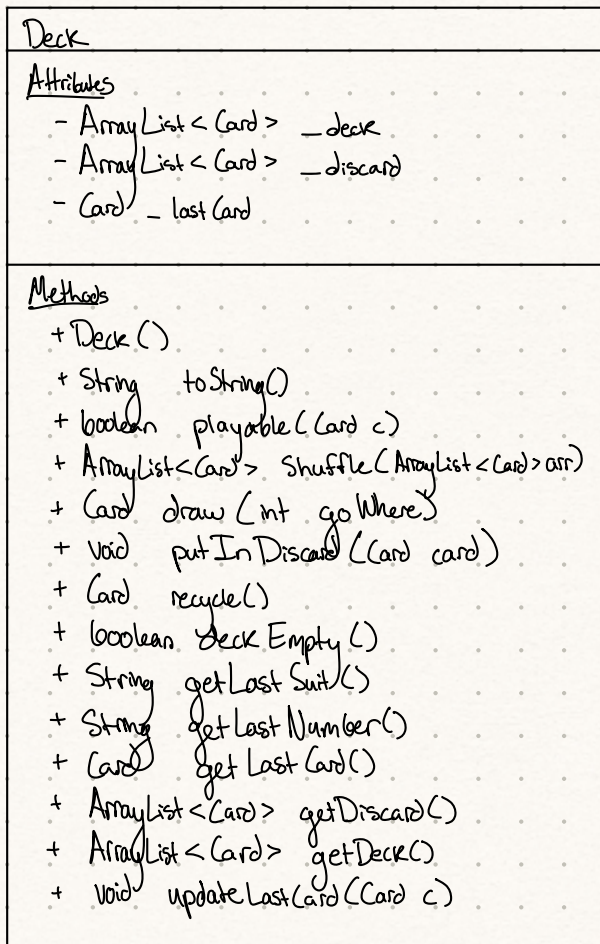 Deck
Attributes
- ArrayList<Card> _deck
- ArrayList<Card> _discard
- Card _lastCard
Methods
+ Deck()
+ String toString()
+ boolean playable(Card c)
+ ArrayList<Card> shuffle(ArrayList<Card> arr)
+ Card draw(int goWhere)
+ void putInDiscard(Card card)
+ Card recycle()
+ boolean deckEmpty()
+ String getLastSuit()
+ String getLastNumber()
+ Card getLastCard()
+ ArrayList<Card> getDiscard()
+ ArrayList<Card> getDeck()
+ void updateLastCard(Card c)